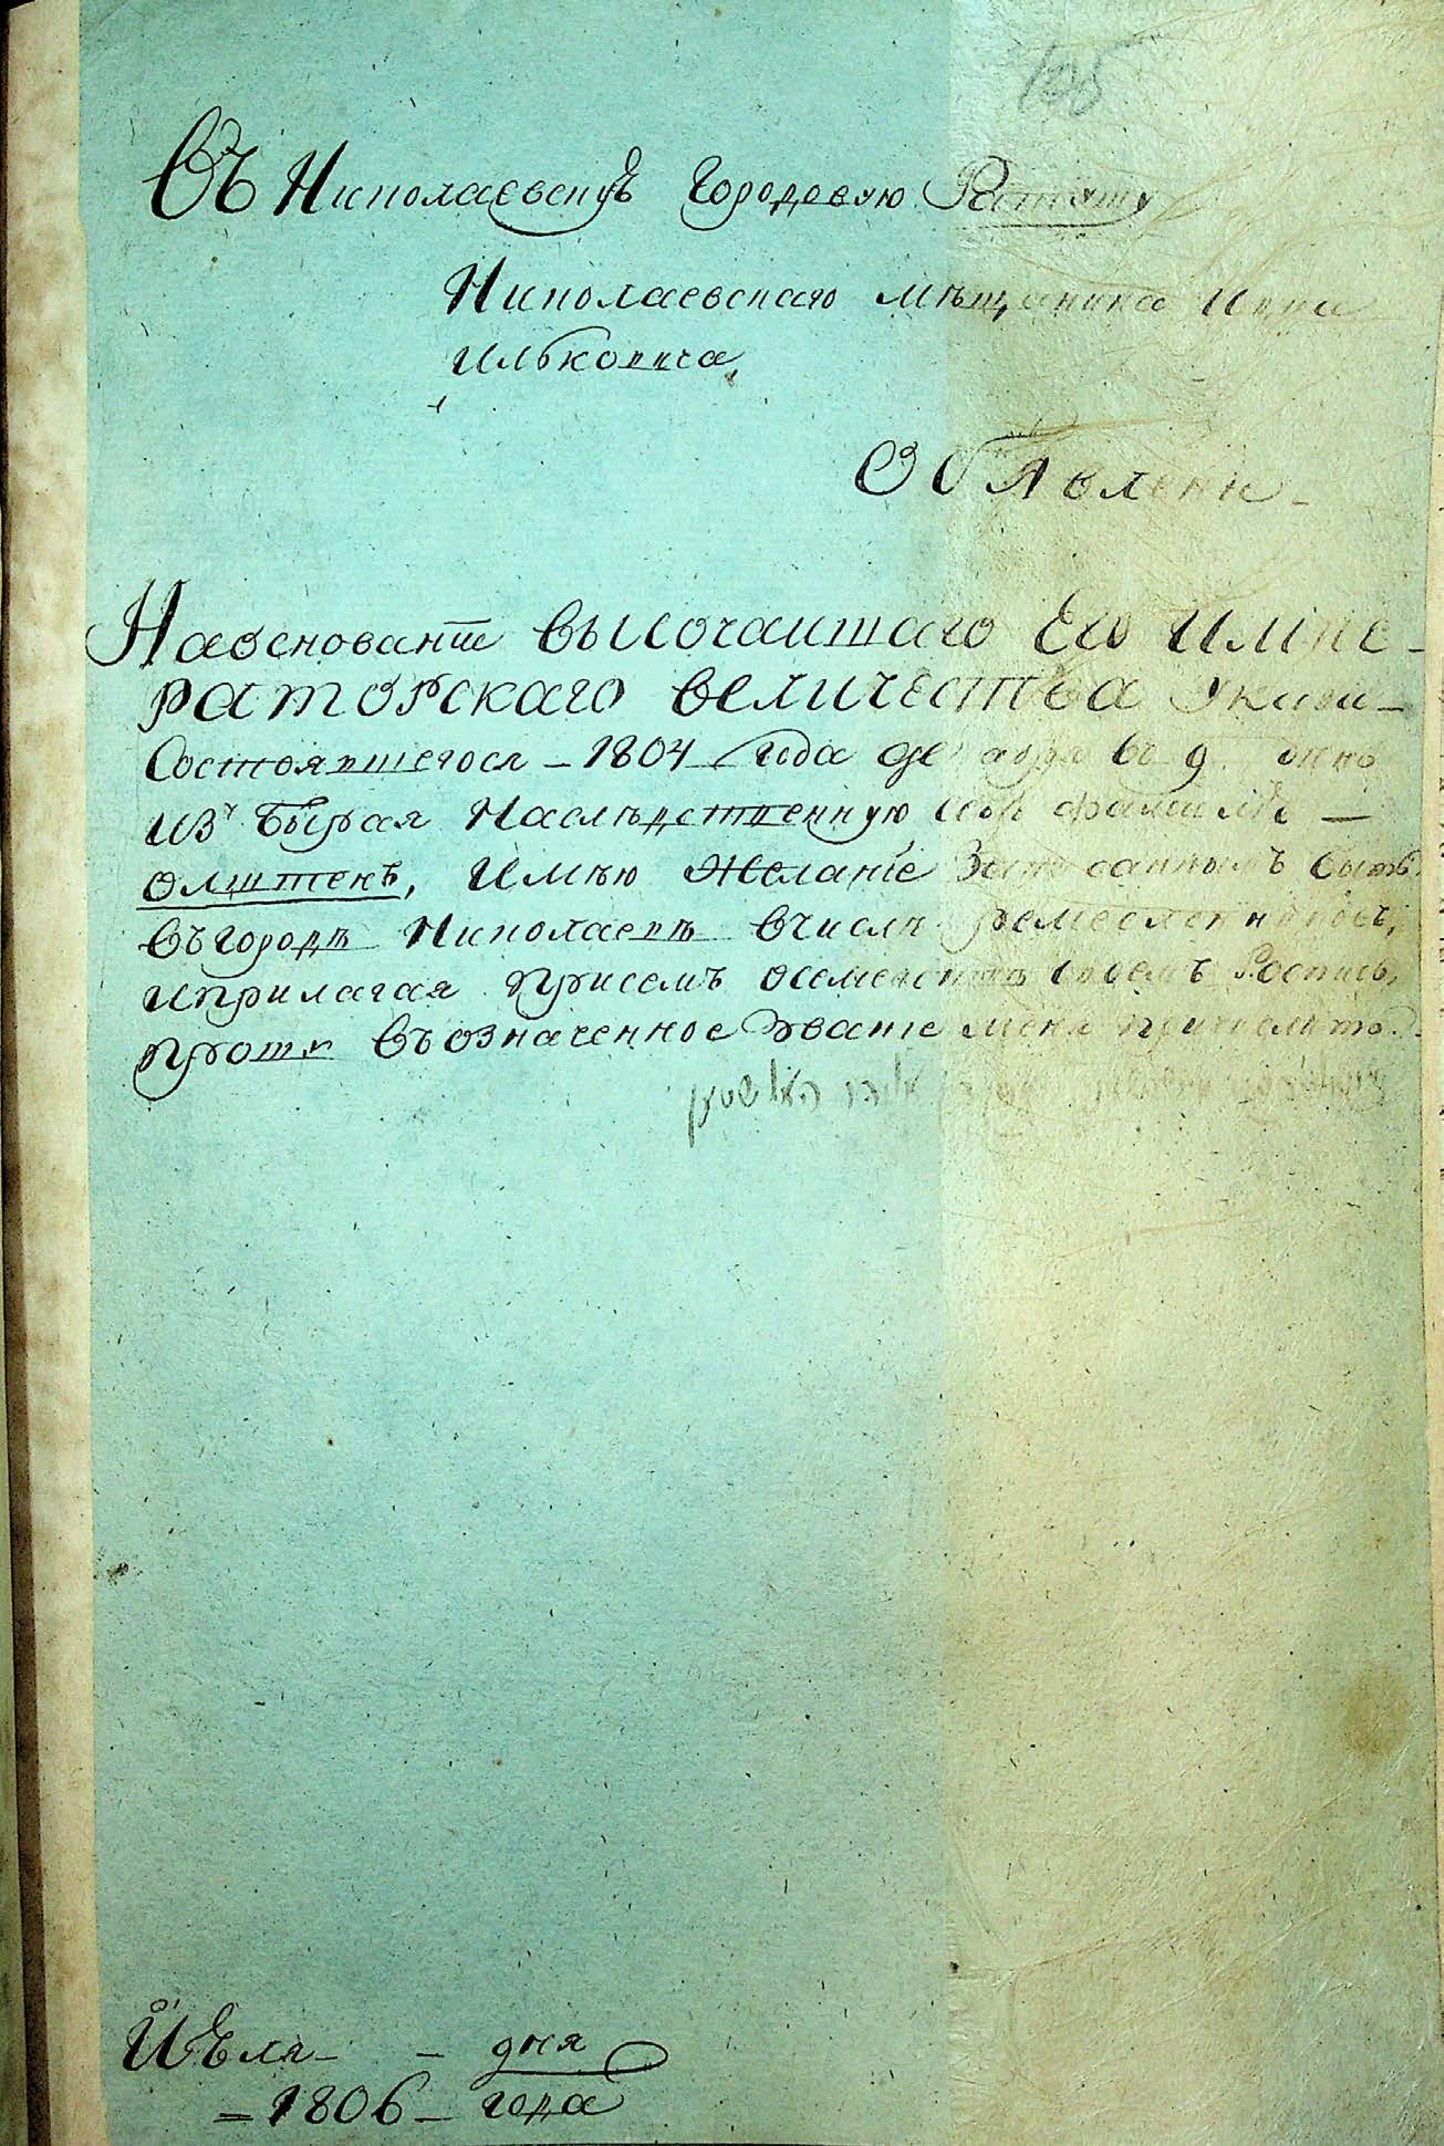 105
Въ Николаевскую Городовую Ратушу
Николаевскаго мѣщанина
Ильковича,
Обявлени-
Наоснованіи высочаишаго Его Импе-
раторскаго величества Указа-
Состоявшегося - 1804 года декабря во 9. дни
избирая Наслѣдственную себѣ фамилію —
олштенъ, Имѣю Желаніе Записаннымъ быть
въгородѣ Николаевѣ вчислѣ ремесленниковъ,
иприлагая присемъ осемействѣ своемъ Роспись,
прошу въозначенное званіе меня причислить.
האלשטען
Июля - - дня
= 1806 - года